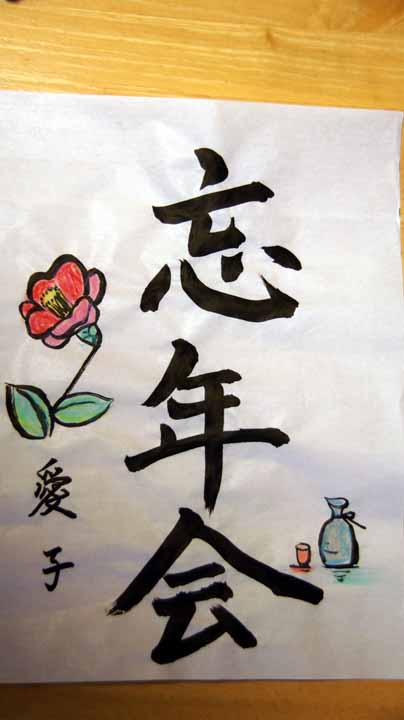 忘年会
愛子